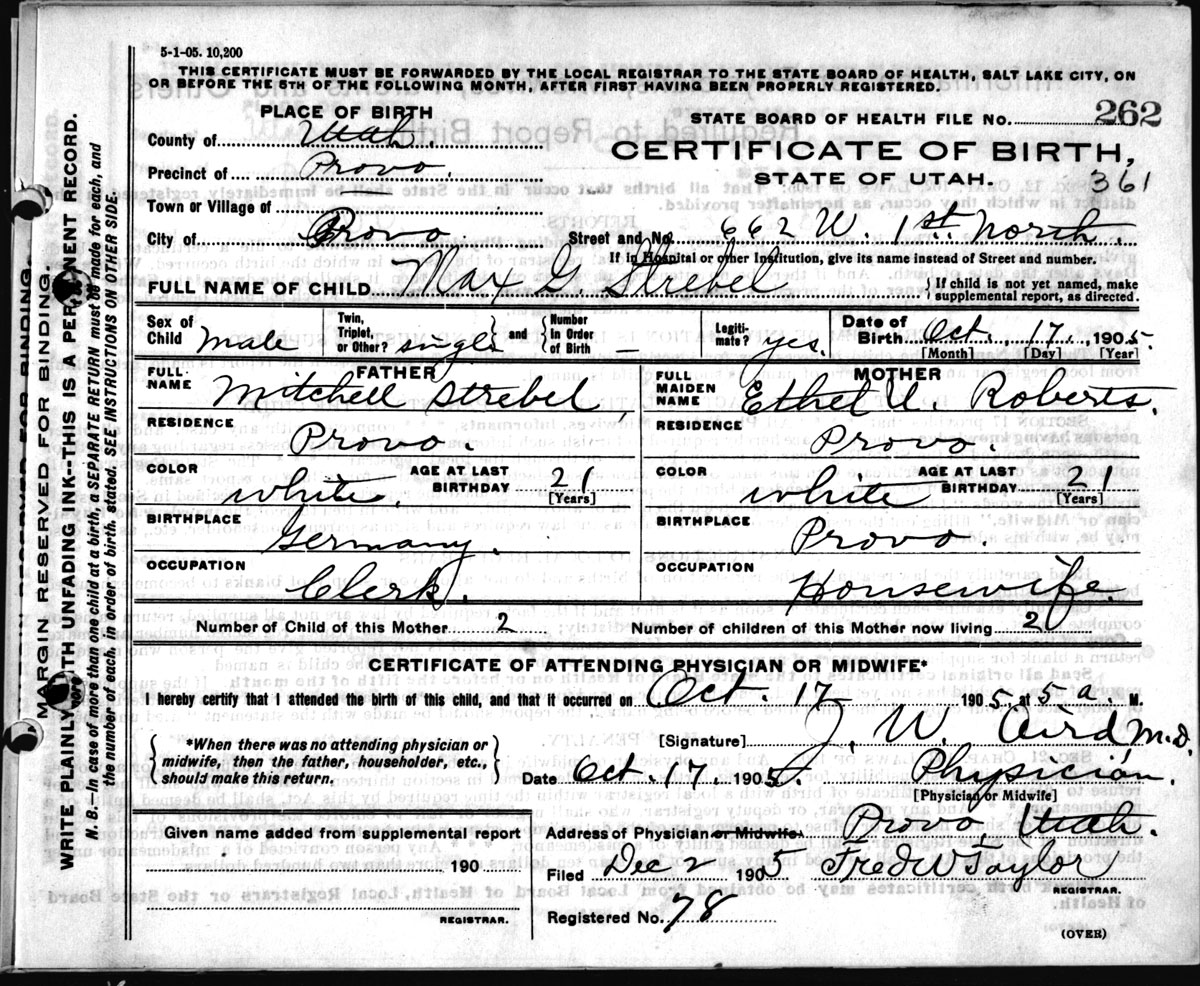 5-1-05. 10,200
THIS CERTIFICATE MUST BE FORWARDED BY THE LOCAL REGISTRAR TO THE STATE BOARD OF HEALTH, SALT LAKE CITY, ON
OR BEFORE THE 5TH OF THE FOLLOWING MONTH, AFTER FIRST HAVING BEEN PROPERLY REGISTERED.
PLACE OF BIRTH
STATE BOARD OF HEALTH FILE NO. 262
County of Utah.
CERTIFICATE OF BIRTH,
Precinct of Provo.
STATE OF UTAH. 361
Town or Village of
City of Provo Street and No. 662 W. 1st. North.
If in Hospital or other Institution, give its name instead of Street and number.
FULL NAME OF CHILD Max G. Strebel { If child is not yet named, make supplemental report, as directed.
Sex of Child Male Twin, Triplet, or Other? single and Number in Order of Birth — Legitimate? yes. Date of Birth Oct. 17, 1905
[Month] [Day] [Year]
FATHER
MOTHER
FULL NAME Mitchell Strebel,
FULL MAIDEN NAME Ethel U. Roberts.
RESIDENCE Provo.
RESIDENCE Provo.
COLOR white, AGE AT LAST BIRTHDAY 21 [Years]
COLOR white AGE AT LAST BIRTHDAY 21 [Years]
BIRTHPLACE Germany.
BIRTHPLACE Provo.
OCCUPATION Clerk.
OCCUPATION Housewife.
Number of Child of this Mother 2 Number of children of this Mother now living 2
CERTIFICATE OF ATTENDING PHYSICIAN OR MIDWIFE*
I hereby certify that I attended the birth of this child, and that it occurred on Oct. 17 1905, at 5 5 a. M.
*When there was no attending physician or
midwife, then the father, householder, etc.,
should make this return.
[Signature] J. W. Aird, M.D.
Date Oct. 17. 1905 Physician.
[Physician or Midwife]
Given name added from supplemental report
190
REGISTRAR.
Address of Physician or Midwife. Provo Utah.
Filed Dec 2 1905 Fred W Taylor
REGISTRAR.
Registered No. 78
(OVER)
MARGIN RESERVED FOR BINDING.
WRITE PLAINLY WITH UNFADING INK--THIS IS A PERMANENT RECORD.
N. B.—In case of more than one child at a birth, a SEPARATE RETURN must be made for each, and
the number of each, in order of birth, stated. SEE INSTRUCTIONS ON OTHER SIDE.